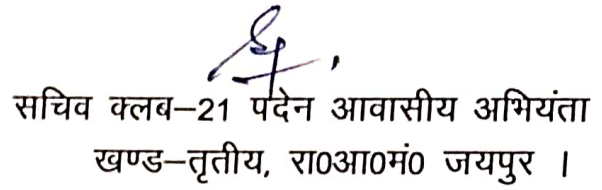 सचिव क्लब–21 पदेन आवासीय अभियंता
खण्ड–तृतीय, रा0आ0मं0 जयपुर ।